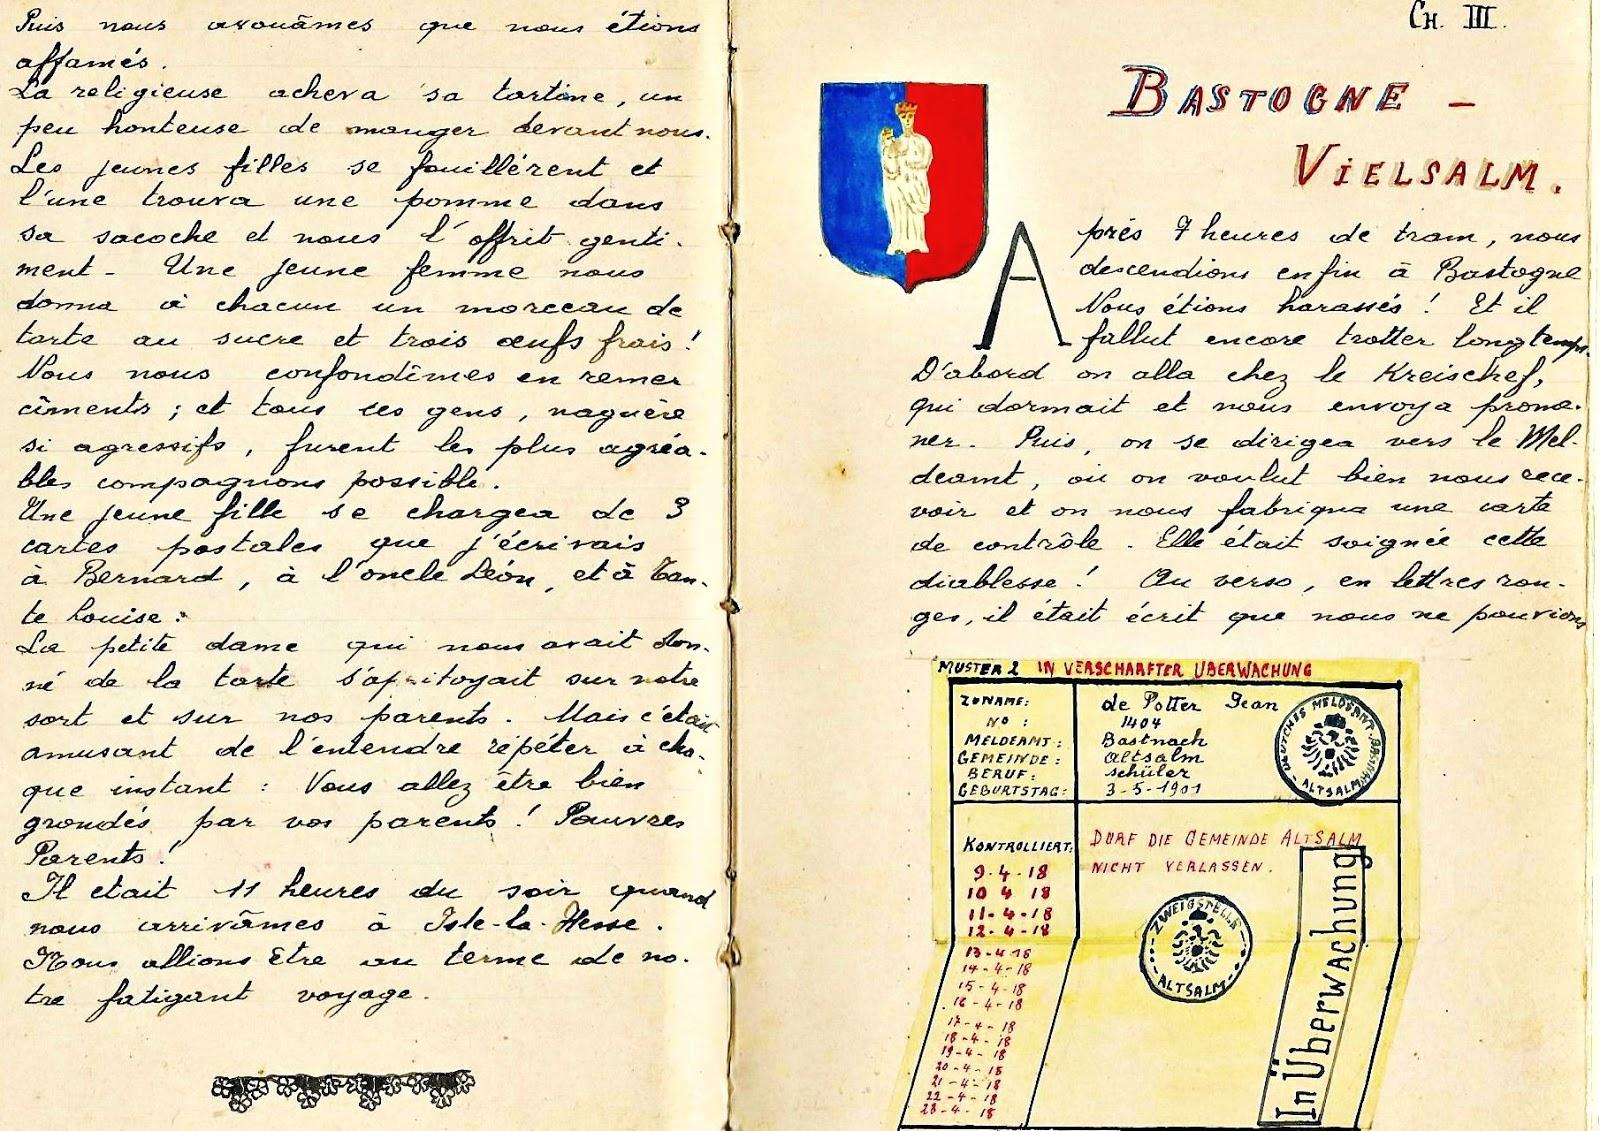 Puis nous avouâmes que nous étions
affamés.
La religieuse acheva sa tartine, un
peu honteuse de manger devant nous.
Les jeunes filles se fouillérent et
l'une trouva une pomme dans
sa sacoche et nous l'offrit genti-
ment - Une jeune femme nous
donna à chacun un morceau de
tarte au sucre et trois œufs frais!
Nous nous confondîmes en remer
cîments; et tous ces gens, naguère
si agressifs, furent les plus agréa-
bles compagnons possible.
Une jeune fille se chargea de 3
cartes postales que j'écrivais
à Bernard, à l'oncle Léon, et à Tan-
te Louise.
La petite dame qui nous avait don-
né de la tarte s'apitoyait sur notre
sort et sur nos parents. Mais c'était
amusant de l'entendre répéter à cha-
que instant : Vous allez être bien
grondés par vos parents! Pauvres
Parents!
Il etait 11 heures du soir quand
nous arrivâmes à Isle-la-Hesse.
Nous allions être au terme de no-
tre fatigant voyage.
CH. III.
BASTOGNE -
VIELSALM.
Après 7 heures de tram, nous
descendions enfin à Bastogne
Nous étions harassés! Et il
fallut encore trotter longtemps.
D'abord on alla chez le Kreischef,
qui dormait et nous envoya prome-
ner. Puis, on se dirigea vers le Mel-
deamt, où on voulut bien nous rece-
voir et on nous fabriqua une carte
de contrôle. Elle était soignée cette
diablesse! Au verso, en lettres rou-
ges, il était écrit que nous ne pouvions
MUSTER 2 IN VERSCHARFTER UBERWACHUNG
ZUNAME: de Potter Jean
No: 1404
MELDEAMT: Bastnach
GEMEINDE: Altsalm
BERUF: schüler
GEBURTSTAG: 3-5-1901
DEUTSCHES MELDEAMT BASTNACH
- ALTSALM -
KONTROLLIERT: DURF DIE GEMEINDE ALTSALM
NICHT VERLASSEN.
9-4-18
10 4 18
11-4-18
12-4-18
13-4-18
14-4-18
15-4-18
16-4-18
17-4-18
18-4-18
19-4-18
20-4-18
21-4-18
22-4-18
23-4-18
ZWEIGSTELLE
ALTSALM
In Überwachung